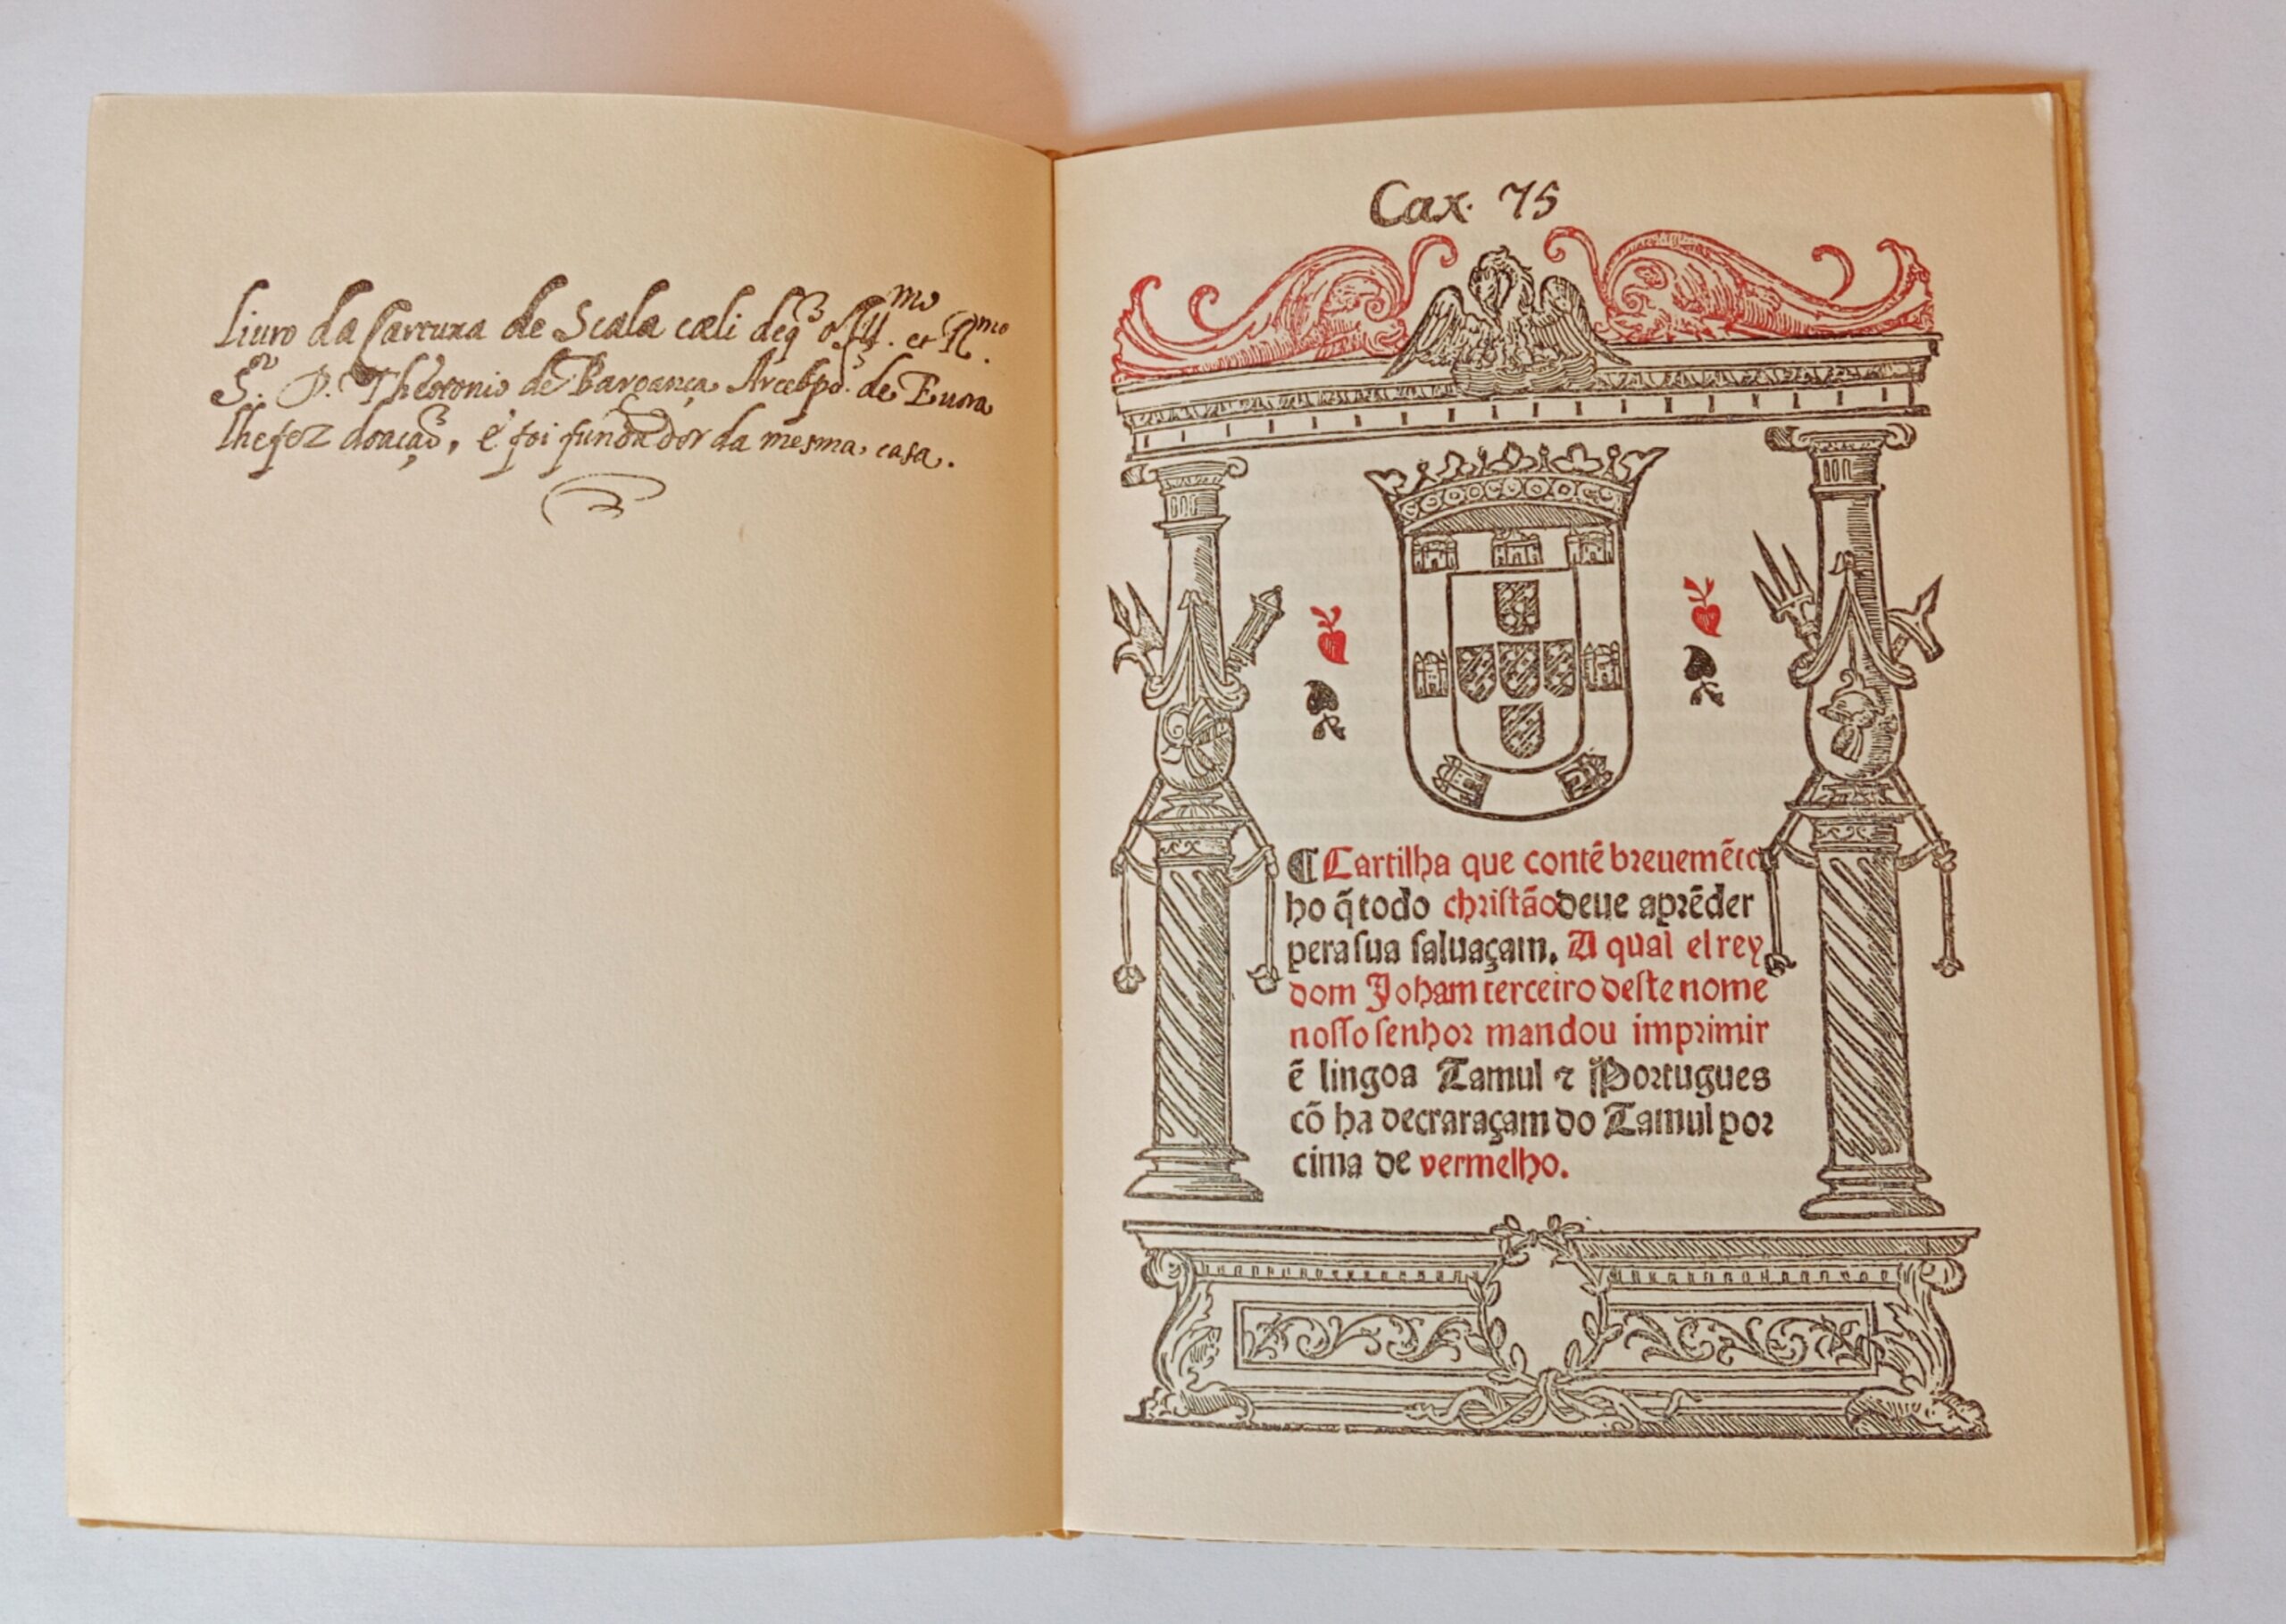 Liuro da Cartuxa de Scala cæli de q̃ o Ill.mo et R.mo
S.or D. Theotonio de Bargança Arcebpõ. de Euora
lhe fez doaçaõ, e foi fundador da mesma casa.
Cax. 75
¶ Cartilha que contẽ breuemẽte
ho q̃ todo christão deue aprẽder
pera sua saluaçam. A qual el rey
dom Joham terceiro deste nome
nosso senhor mandou imprimir
ẽ lingoa Tamul ⁊ Portugues
cõ ha decraraçam do Tamul por
cima de vermelho.